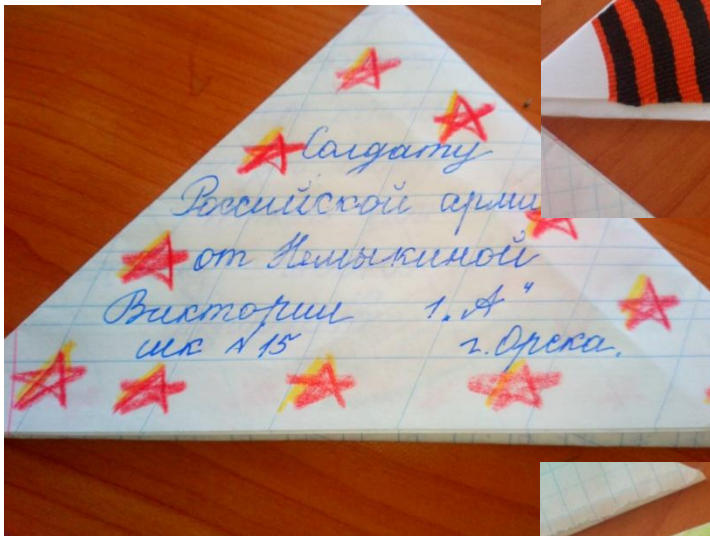 Солдату
Российской арми
от Немыкиной
Виктории 1 „А"
шк №15 г. Орска.